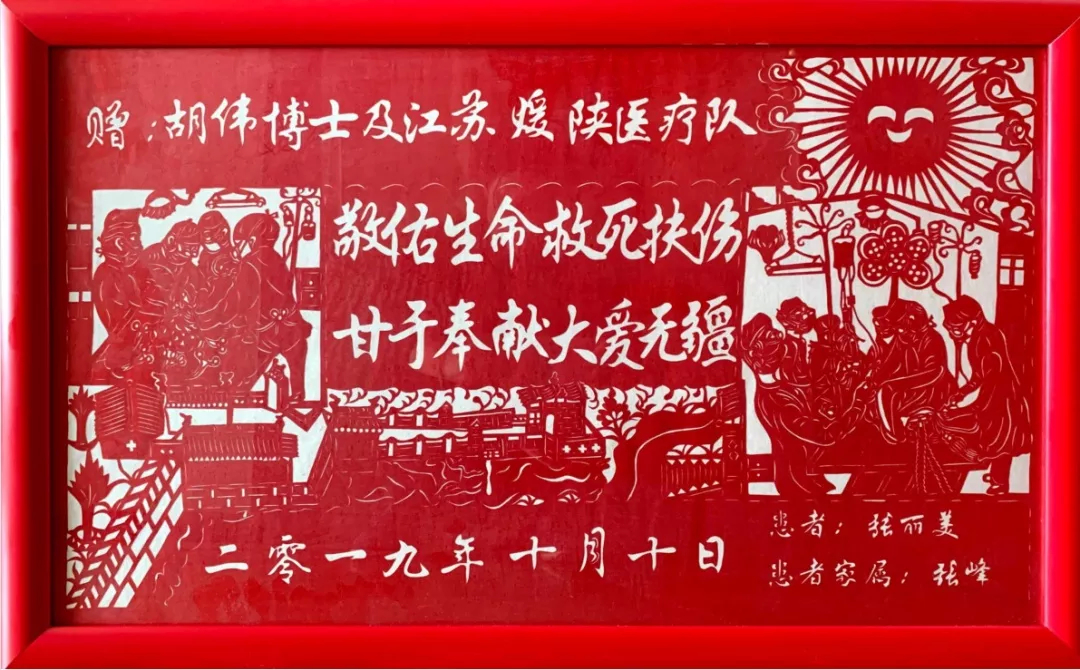 赠:胡伟博士及江苏援陕医疗队
敬佑生命救死扶伤
甘于奉献大爱无疆
二零一九年十月十日
患者:张丽美
患者家属:张峰